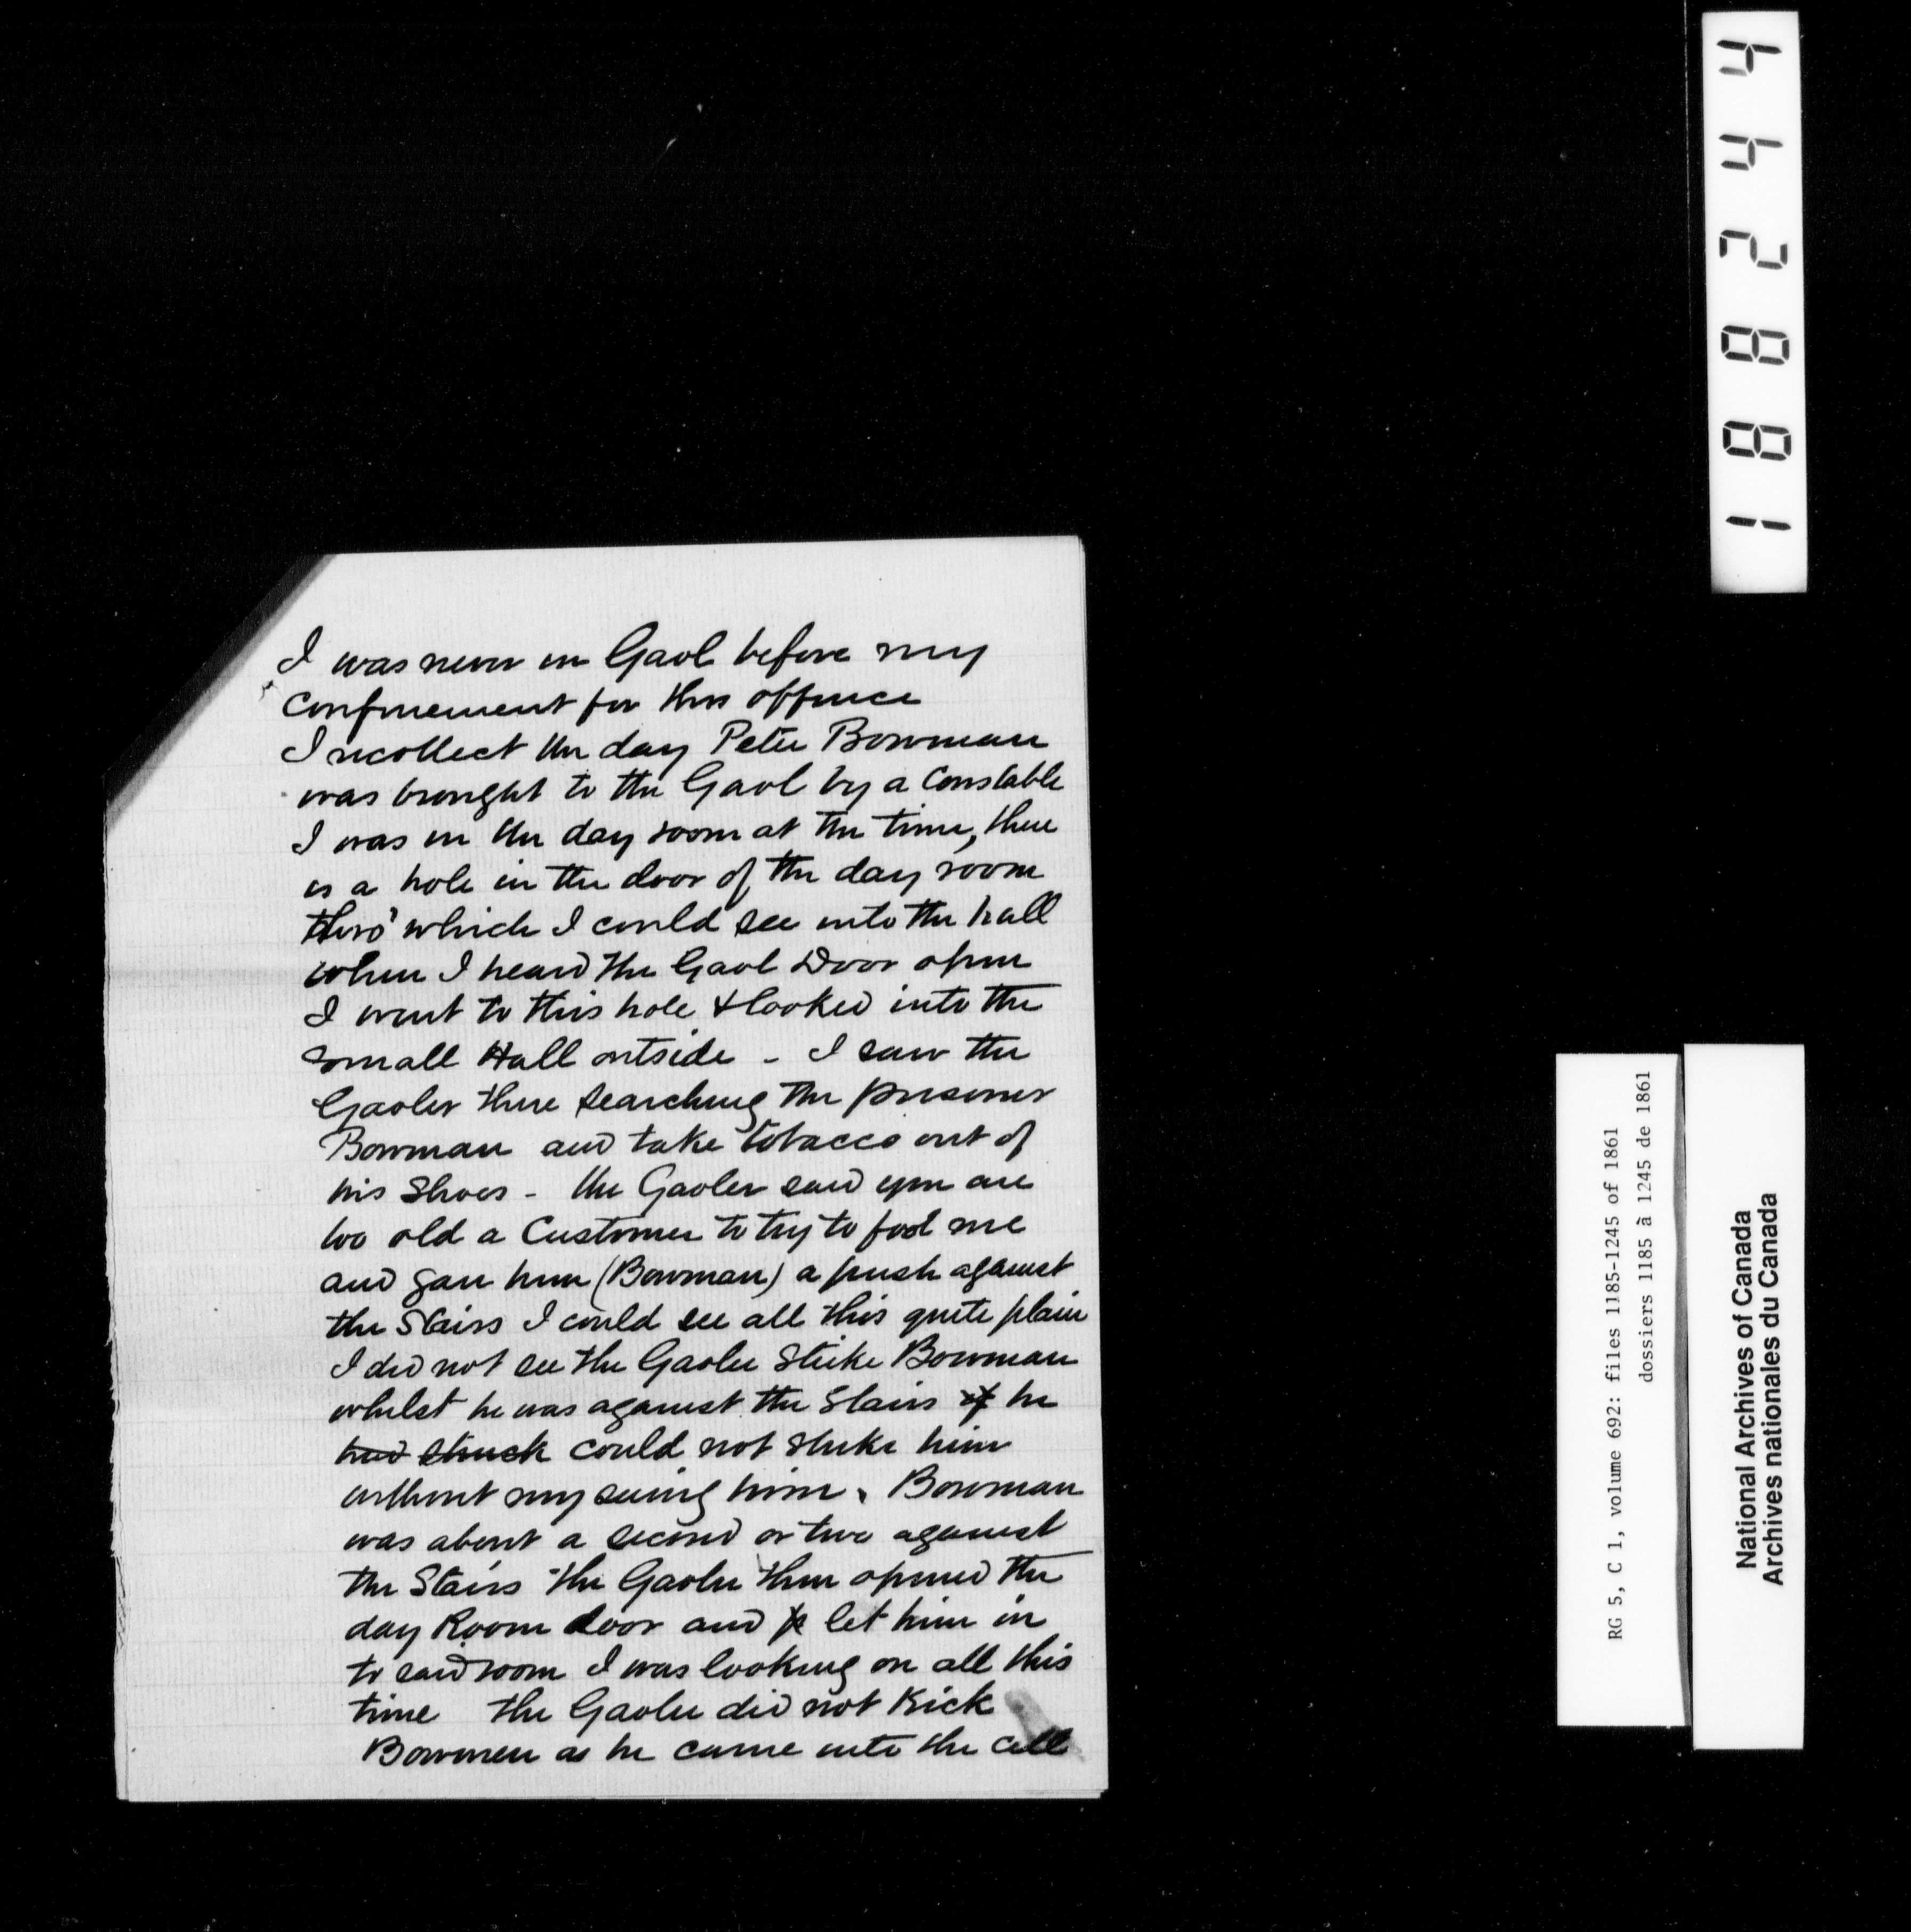 I was never in Gaol before my
confinement for this offence
I recollect the day Peter Bowman
was brought to the Gaol by a Constable
I was in the day room at the time, there
is a hole in the door of the day room
thro' which I could see into the hall
when I heard the Gaol Door open
I went to this hole & looked into the
small Hall outside - I saw the
Gaoler there searching the prisoner
Bowman and take tobacco out of
his Shoes - the Gaoler said you are
too old a Customer to try to fool me
and gave him (Bowman) a push against
the Stairs I could see all this quite plain
I did not see the Gaoler Strike Bowman
whilst he was against the Stairs if he
had struck could not strike him
without my seeing him. Bowman
was about a second or two against
the Stairs the Gaoler then opened the
day Room door and let him in
to said room I was looking on all this
time the Gaoler did not Kick
Bowman as he came into the cell
188244
RG 5, C 1, volume 692: files 1185-1245 of 1861
dossiers 1185 à 1245 de 1861
National Archives of Canada
Archives nationales du Canada